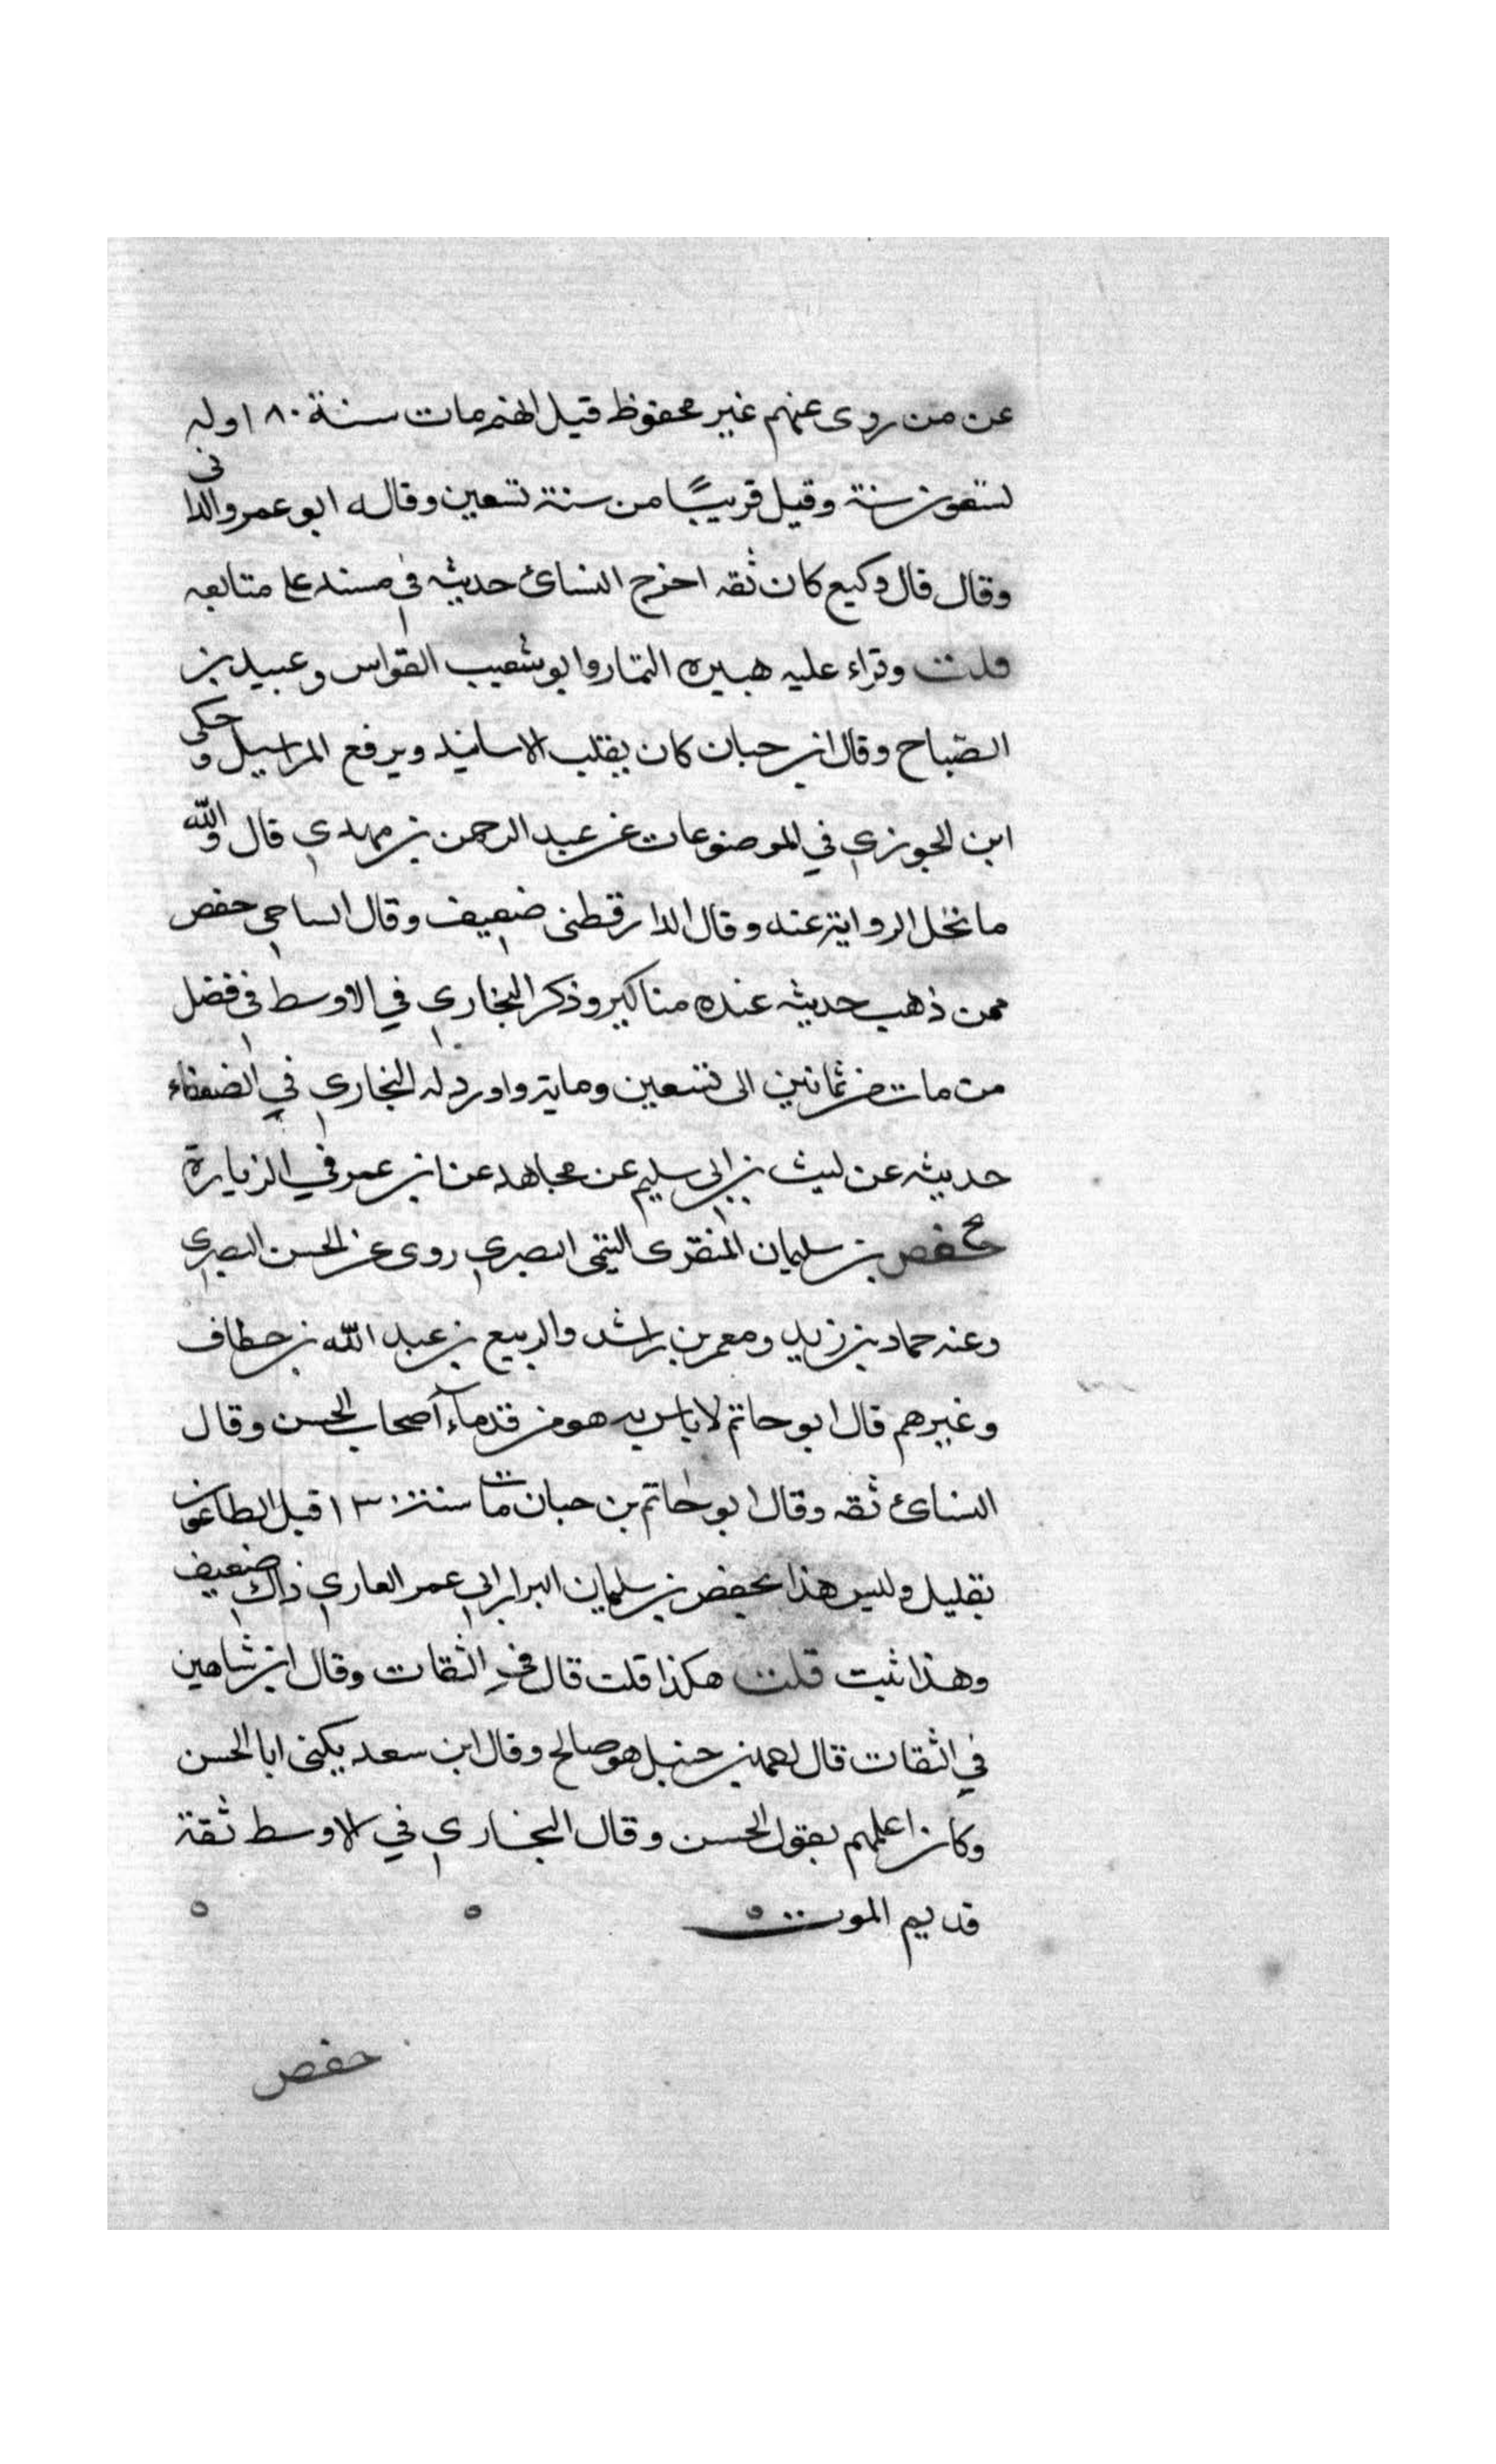 عن من روى عنهم غير محفوظ قيل انه مات سنة ١٨٠ وله
تسعون سنة وقيل قريبًا من سنة تسعين وقاله ابو عمرو الدانى
وقال قال وكيع كان ثقه اخرج النسائ حديثه في مسند على متابعه
قلت وقراء عليه هبيره التمار وابو شعيب القواس وعبيد بن
الصباح وقال ابن حبان كان يقلب الاسانيد ويرفع المراسيل وحكى
ابن الجوزي في الموضوعات عن عبد الرحمن بن مهدي قال والله
ما تحل الرواية عنه وقال الدارقطنى ضعيف وقال الساجي حفص
ممن ذهب حديثه عنده مناكير وذكر البخاري في الاوسط في فضل
من مات من ثمانين الى تسعين وماية واورد له البخاري في الضعفاء
حديثه عن ليث بن ابي سليم عن مجاهد عن ابن عمر في الزيارة
حفص بن سليمان المنقرى التيمى البصري روى عن الحسن البصري
وعنه حماد بن زيد ومعمر بن راشد والربيع بن عبد الله بن حطاف
وغيرهم قال ابو حاتم لا باس به هو من قدماء آصحاب الحسن وقال
النسائ ثقه وقال ابو حاتم بن حبان مات سنة ١٣٠ قبل الطاعون
بقليل وليس هذا بحفص بن سليمان البزار ابي عمر القاري ذاك ضعيف
وهذا ثبت قلت هكذا قلت قال في الثقات وقال ابن شاهين
في الثقات قال احمد بن حنبل هو صالح وقال ابن سعد يكنى ابا الحسن
وكان اعلمهم بقول الحسن وقال البخاري في الاوسط ثقة
قديم الموت
حفص